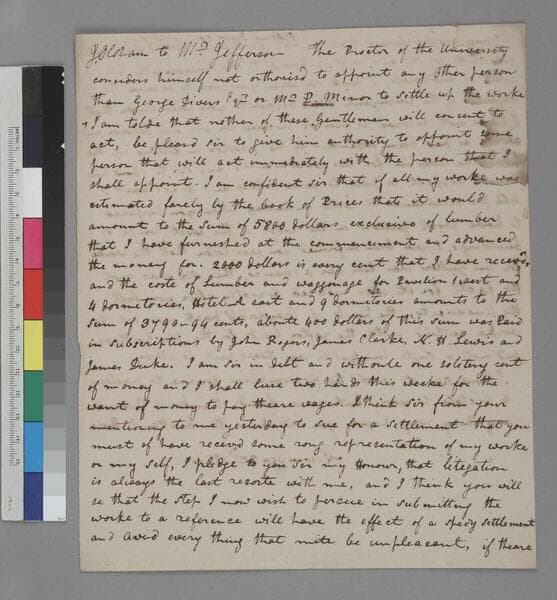 JOldham to Mr Jefferson The Proctor of the University
considers himself not orthorisd to appoint any other person
than George Divers Esqr or Mr P. Minor to settle up the worke
I am tolde that nother of these Gentlemen will consent to
act, be pleasd sir to give him authority to appoint some
person that will act immediately with the person that I
shall appoint. I am confident sir that if all my worke was
estimated farely by the book of Prices that it would
amount to the sum of 5800 dollars exclusive of lumber
that I have furnished at the commencement and advanced
the money for. 2000 dollars is every cent that I have receivd,
and the coste of Lumber and waggonage for Pavilion 1 west and
4 dormitories, Hotel A east and 9 dormitories amounts to the
sum of 3790-94 cents, aboute 400 dollars of this sum was Paid
in subscriptions by John Rogers, James Clarke, N. H. Lewis and
James Duke. I am sir in debt and withoute one soletery cent
of money and I shall luse two hands this weeke for the
want of money to pay theare wages. I think sir from your
mentioning to me yesterday to sue for a settlement that you
must of have receivd some rong representation of my worke
or my self, I pledge to you sir my Honour, that litegation
is always the last resorte with me, and I think you will
se that the step I now wish to persue in submitting the
worke to a reference will have the effect of a spedy settlement
and avoid every thing that mite be unpleasant, if theare